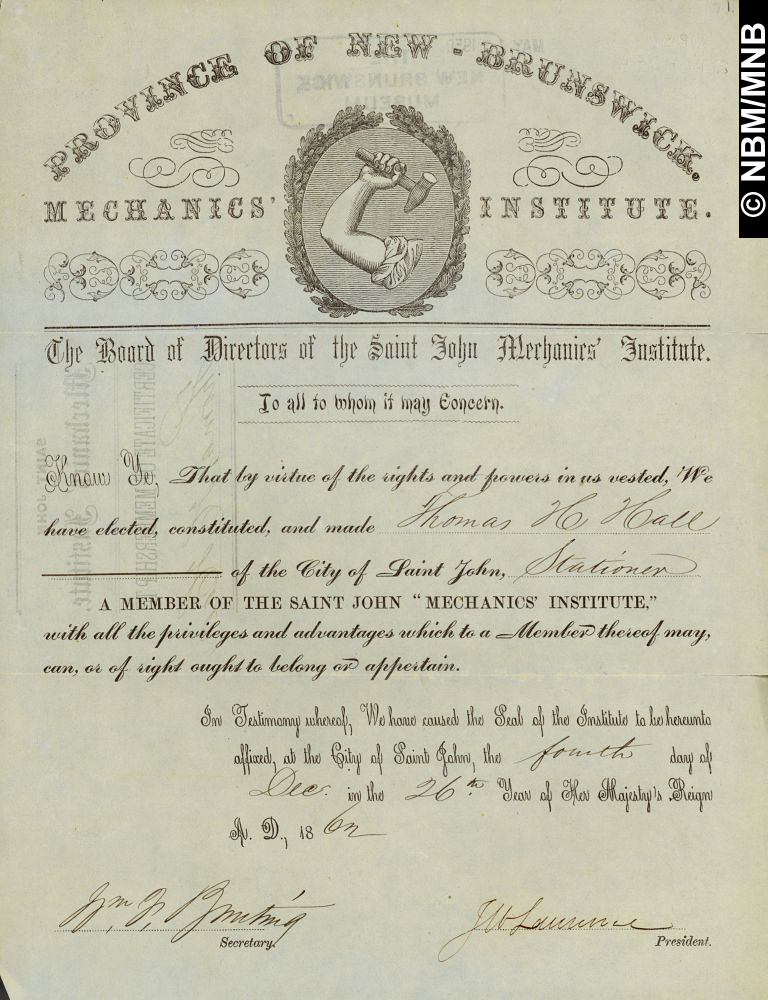 PROVINCE OF NEW-BRUNSWICK.
MECHANICS' INSTITUTE.
The Board of Directors of the Saint John Mechanics' Institute.
To all to whom it may Concern.
Know Ye, That by virtue of the rights and powers in us vested, We
have elected, constituted, and made Thomas H Hall
of the City of Saint John, Stationer
A MEMBER OF THE SAINT JOHN "MECHANICS' INSTITUTE,"
with all the privileges and advantages which to a Member thereof may,
can, or of right ought to belong or appertain.
In Testimony whereof, We have caused the Seal of the Institute to be hereunto
affixed, at the City of Saint John, the fourth day of
Dec. in the 26th Year of Her Majesty's Reign
A. D., 1862
Wm. F. Bunting
Secretary.
JW Lawrence
President.
© NBM/MNB
MAY
NEW BRUNSWICK
MUSEUM
Mechanics' Institute.
SAINT JOHN
CERTIFICATE OF MEMBERSHIP